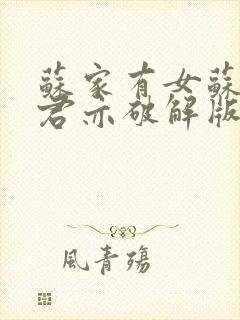 蘇家有女蘇
君亦破解版
風青殤